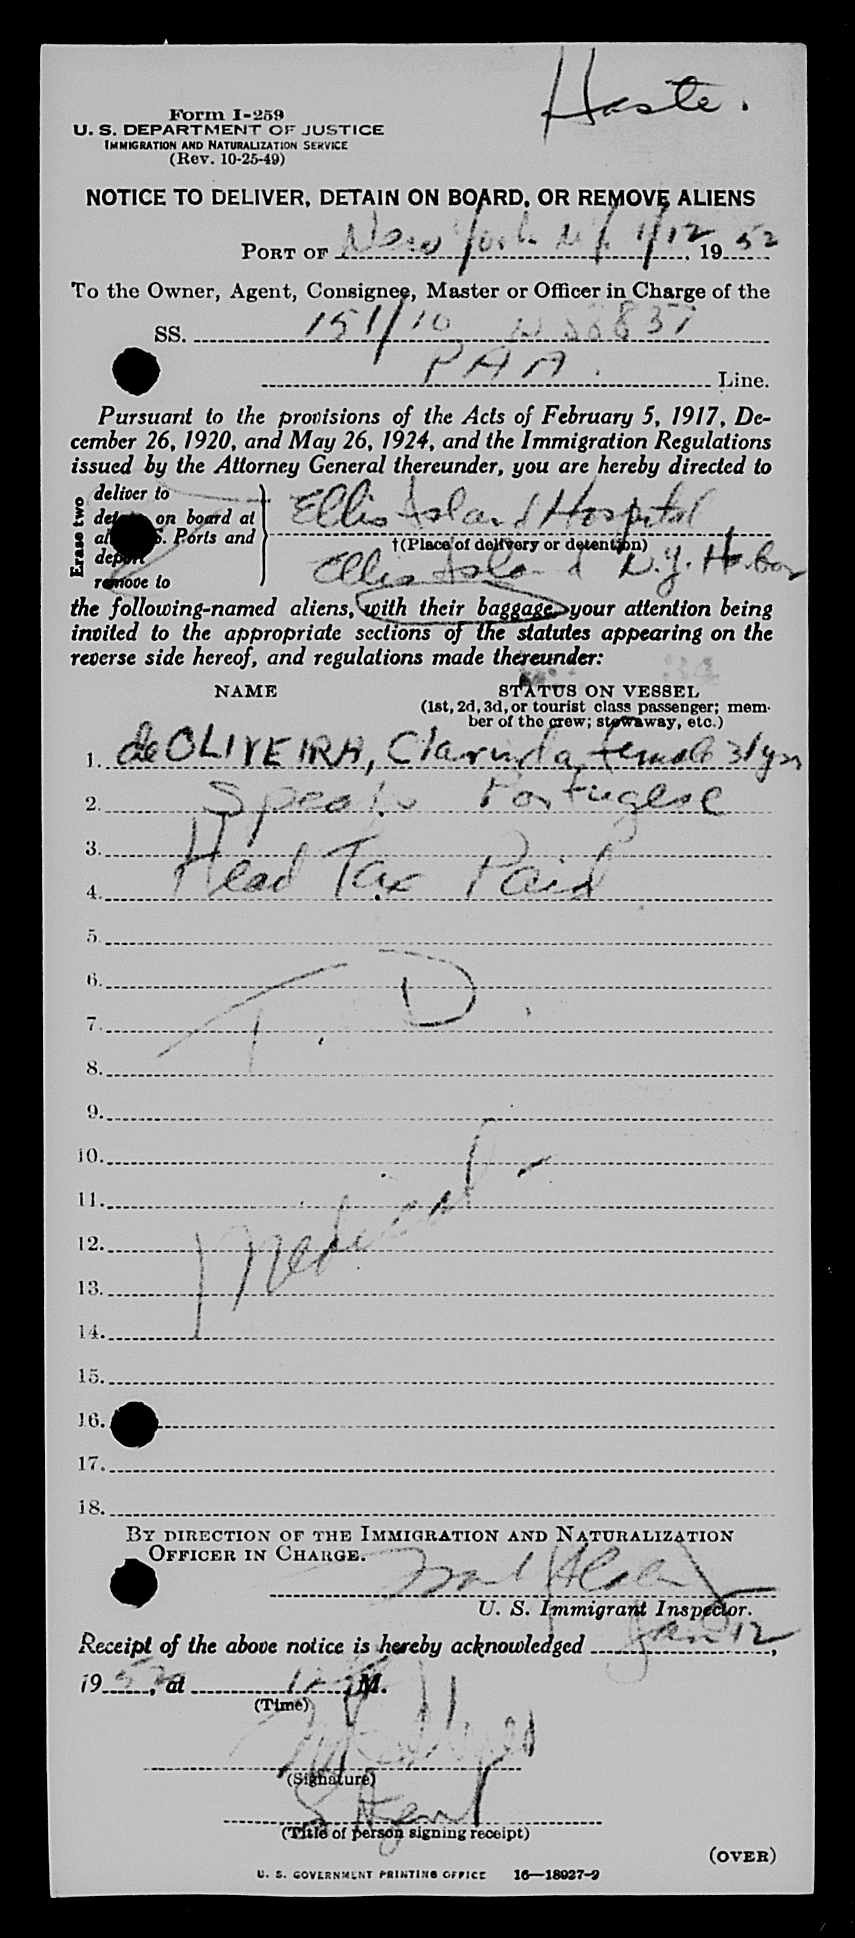 Haste.
Form I-259
U. S. DEPARTMENT OF JUSTICE
IMMIGRATION AND NATURALIZATION SERVICE
(Rev. 10-25-49)
NOTICE TO DELIVER, DETAIN ON BOARD, OR REMOVE ALIENS
PORT OF New York N.Y. 1/12, 1952
To the Owner, Agent, Consignee, Master or Officer in Charge of the
SS. 151/10 N 88837
PAA. Line.
Pursuant to the provisions of the Acts of February 5, 1917, De-
cember 26, 1920, and May 26, 1924, and the Immigration Regulations
issued by the Attorney General thereunder, you are hereby directed to
Erase two
deliver to
on board at
S. Ports and
remove to
Ellis Island Hospital
†(Place of delivery or detention)
Ellis Island N.Y. Harbor
the following-named aliens, with their baggage, your attention being
invited to the appropriate sections of the statutes appearing on the
reverse side hereof, and regulations made thereunder:
NAME
STATUS ON VESSEL
(1st, 2d, 3d, or tourist class passenger; mem-
ber of the crew; stowaway, etc.)
1. de OLIVEIRA, Clarinda, female 31 yrs
2. Speaks Portugese
3.
4. Head Tax Paid
5.
6.
T. D.
7.
8.
9.
10.
11.
Medical -
12.
13.
14.
15.
16.
17.
18.
BY DIRECTION OF THE IMMIGRATION AND NATURALIZATION
OFFICER IN CHARGE.
U. S. Immigrant Inspector.
Receipt of the above notice is hereby acknowledged Jan 12,
1952, at M.
(Time)
(Signature)
Agent
(Title of person signing receipt)
(OVER)
U. S. GOVERNMENT PRINTING OFFICE 16—18927-2